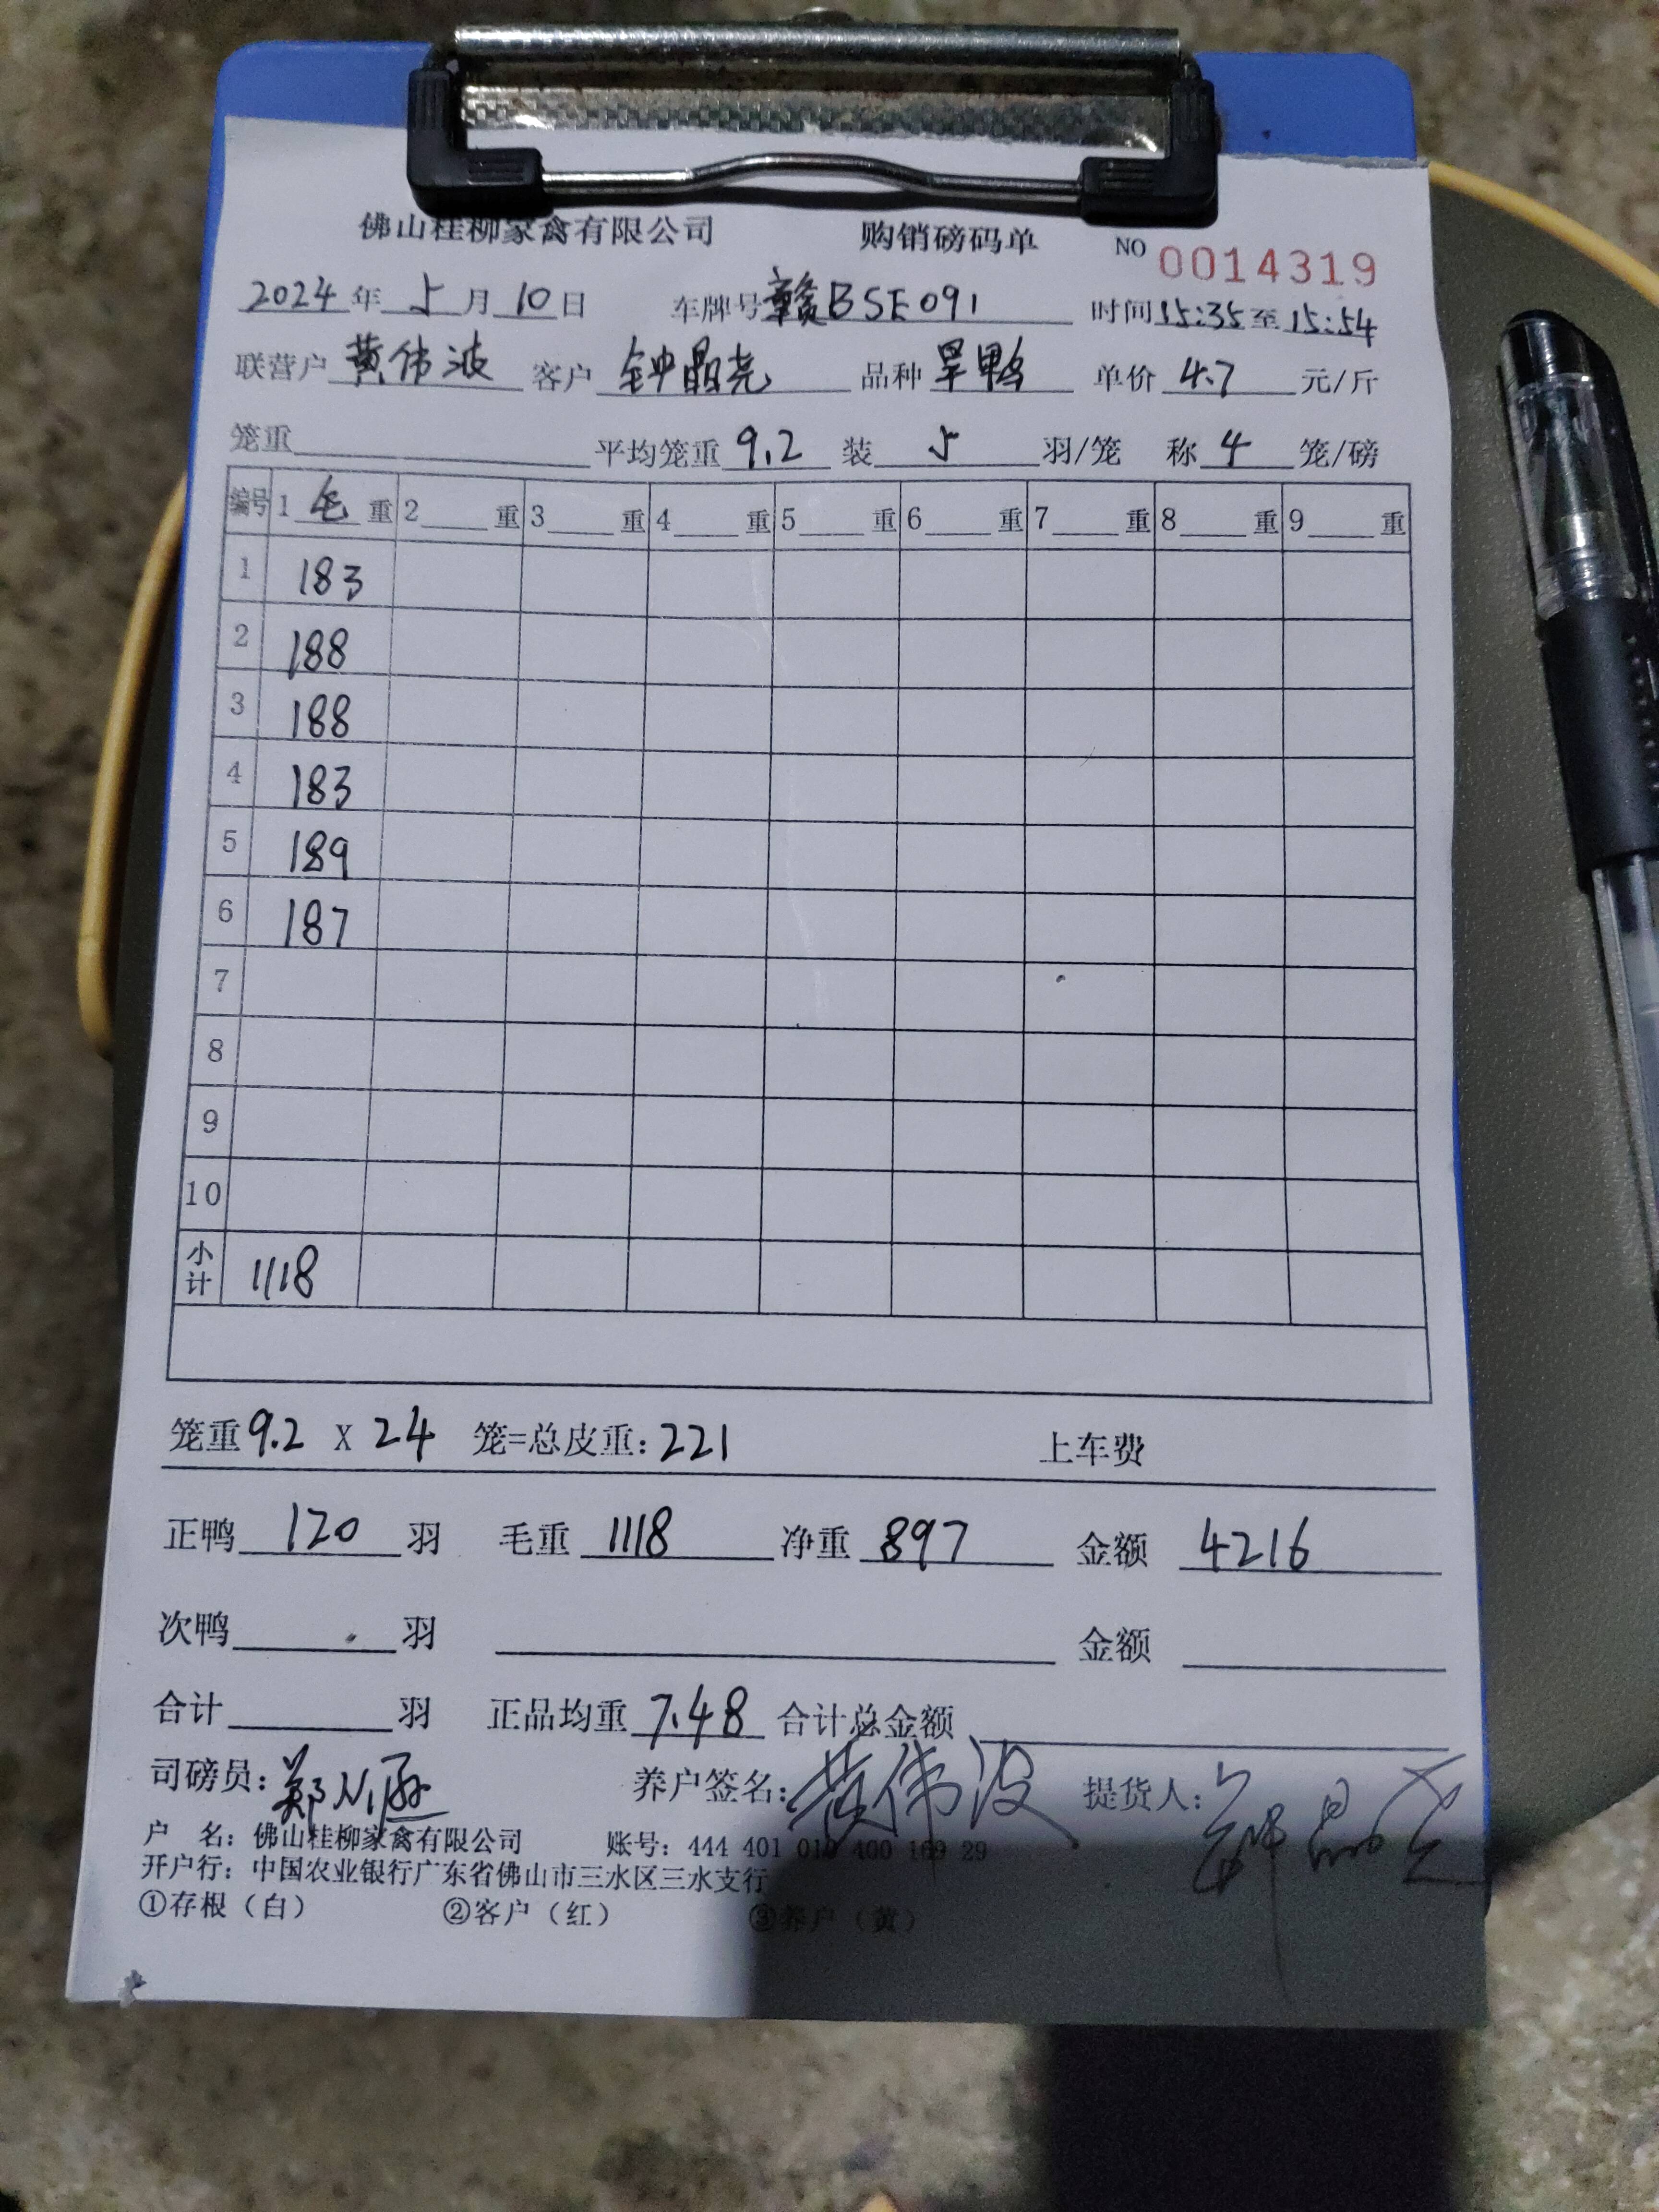 佛山桂柳家禽有限公司 购销磅码单 NO 0014319
2024年 5月10日 车牌号 赣BSE091 时间15:35至15:54
联营户 黄伟波 客户 钟晶尧 品种 旱鸭 单价 4.7 元/斤
笼重 平均笼重 9.2 装 5 羽/笼 称 4 笼/磅
编号 1 毛 重 2 重 3 重 4 重 5 重 6 重 7 重 8 重 9 重
1 183
2 188
3 188
4 183
5 189
6 187
7
8
9
10
小计 1118
笼重 9.2 X 24 笼=总皮重: 221 上车费
正鸭 120 羽 毛重 1118 净重 897 金额 4216
次鸭 羽 金额
合计 羽 正品均重 7.48 合计总金额
司磅员: 郑 养户签名: 黄伟波 提货人: 钟晶尧
户 名: 佛山桂柳家禽有限公司 账号: 444 401 010 400 169 29
开户行: 中国农业银行广东省佛山市三水区三水支行
①存根（白） ②客户（红） ③养户（黄）